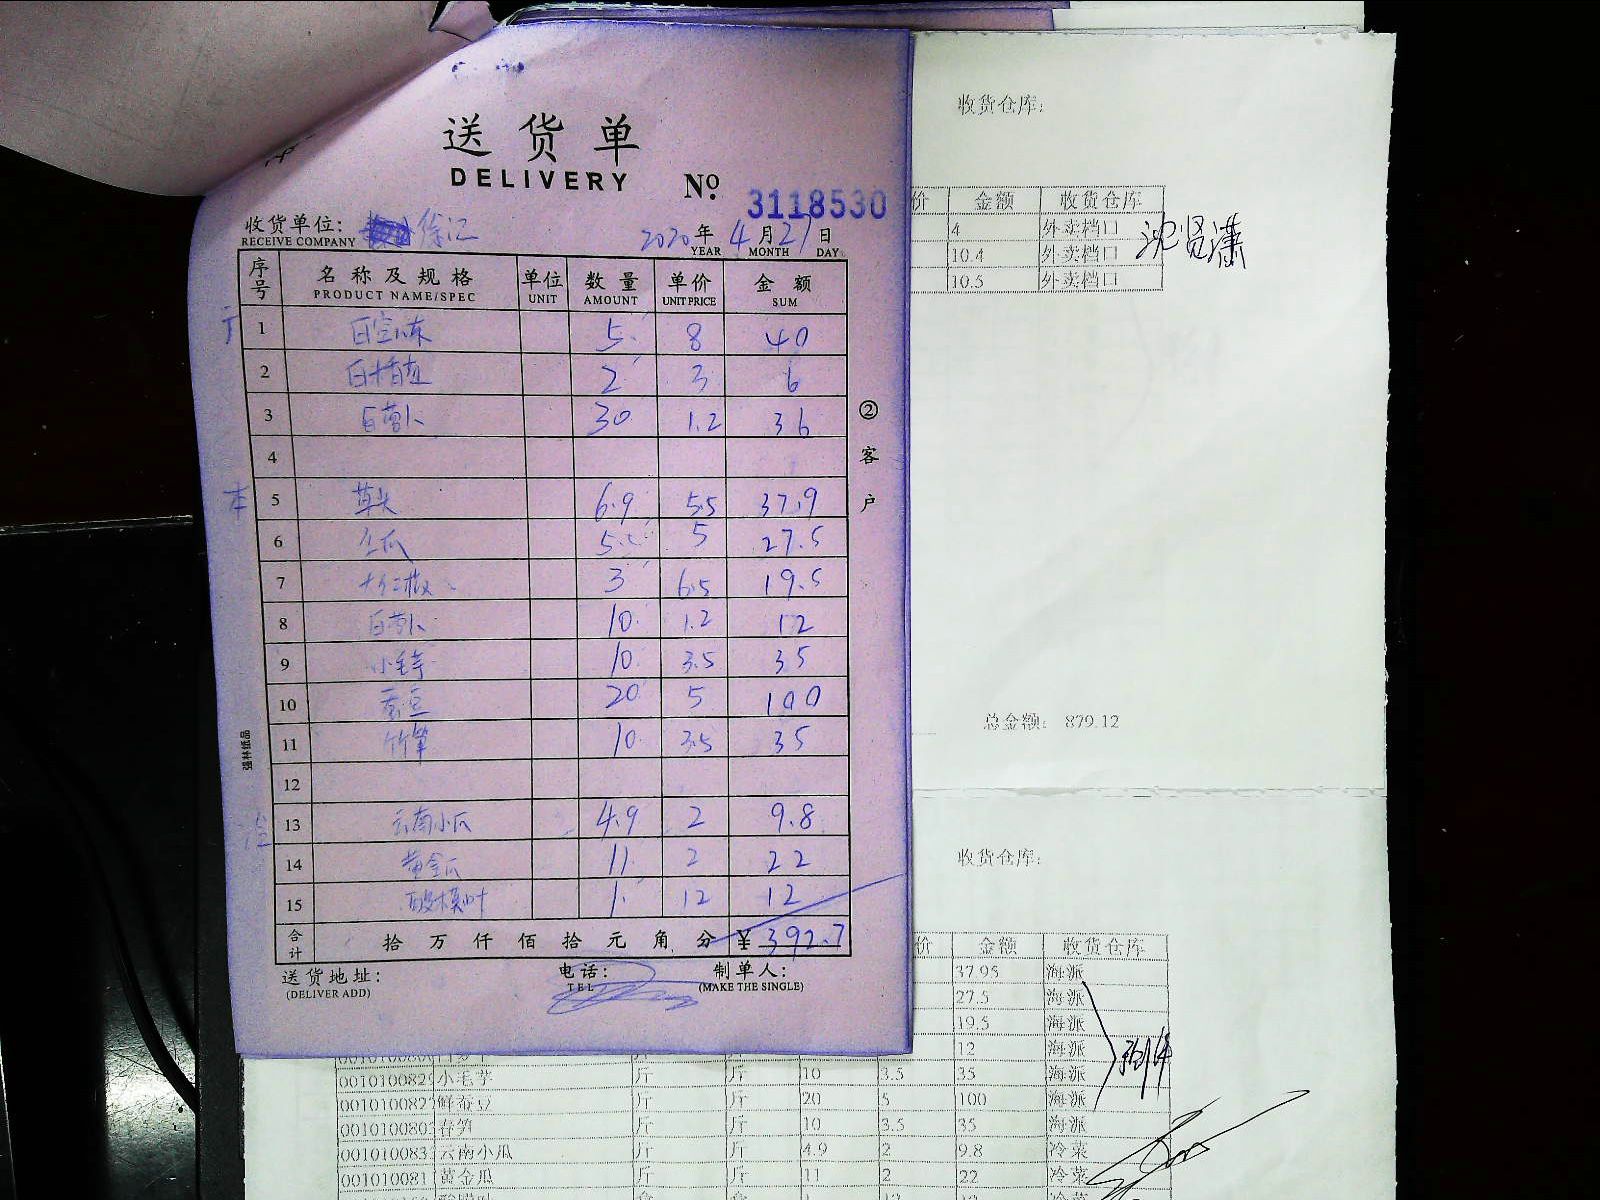 送货单
DELIVERY
No. 3118530
收货单位: 徐汇
RECEIVE COMPANY
2020年4月27日
YEAR MONTH DAY
序号 名称及规格 单位 数量 单价 金额
PRODUCT NAME/SPEC UNIT AMOUNT UNIT PRICE SUM
1 5 8 40
2 2 3 6
3 白萝卜 30 1.2 36
4
5 草头 6.9 5.5 37.9
6 5 27.5
7 3 6.5 19.5
8 白萝卜 10 1.2 12
9 小毛芋 10 3.5 35
10 蚕豆 20 5 100
11 竹笋 10 3.5 35
12
13 云南小瓜 4.9 2 9.8
14 黄金瓜 11 2 22
15 酸模叶 1 12 12
合计 拾万仟佰拾元角分 ¥392.7
送货地址: 电话: 制单人:
(DELIVER ADD) TEL (MAKE THE SINGLE)
②客户
强林纸品
收货仓库:
价 金额 收货仓库
4 外卖档口
10.4 外卖档口
10.5 外卖档口
沈贤潇
总金额: 879.12
收货仓库:
价 金额 收货仓库
37.95 海派
27.5 海派
19.5 海派
12 海派
001010082 小毛芋 斤 斤 10 3.5 35 海派
001010082 鲜蚕豆 斤 斤 20 5 100 海派
001010080 春笋 斤 斤 10 3.5 35 海派
001010083 云南小瓜 斤 斤 4.9 2 9.8 冷菜
001010081 黄金瓜 斤 斤 11 2 22 冷菜